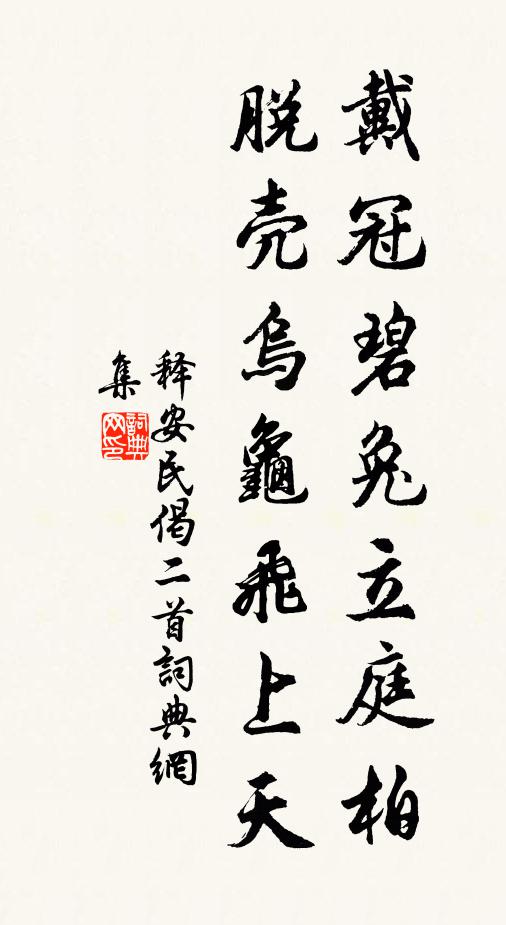 戴冠碧兔立庭柏
脱壳烏龜飛上天
释安民偈二首詞典網
集
詞典网印